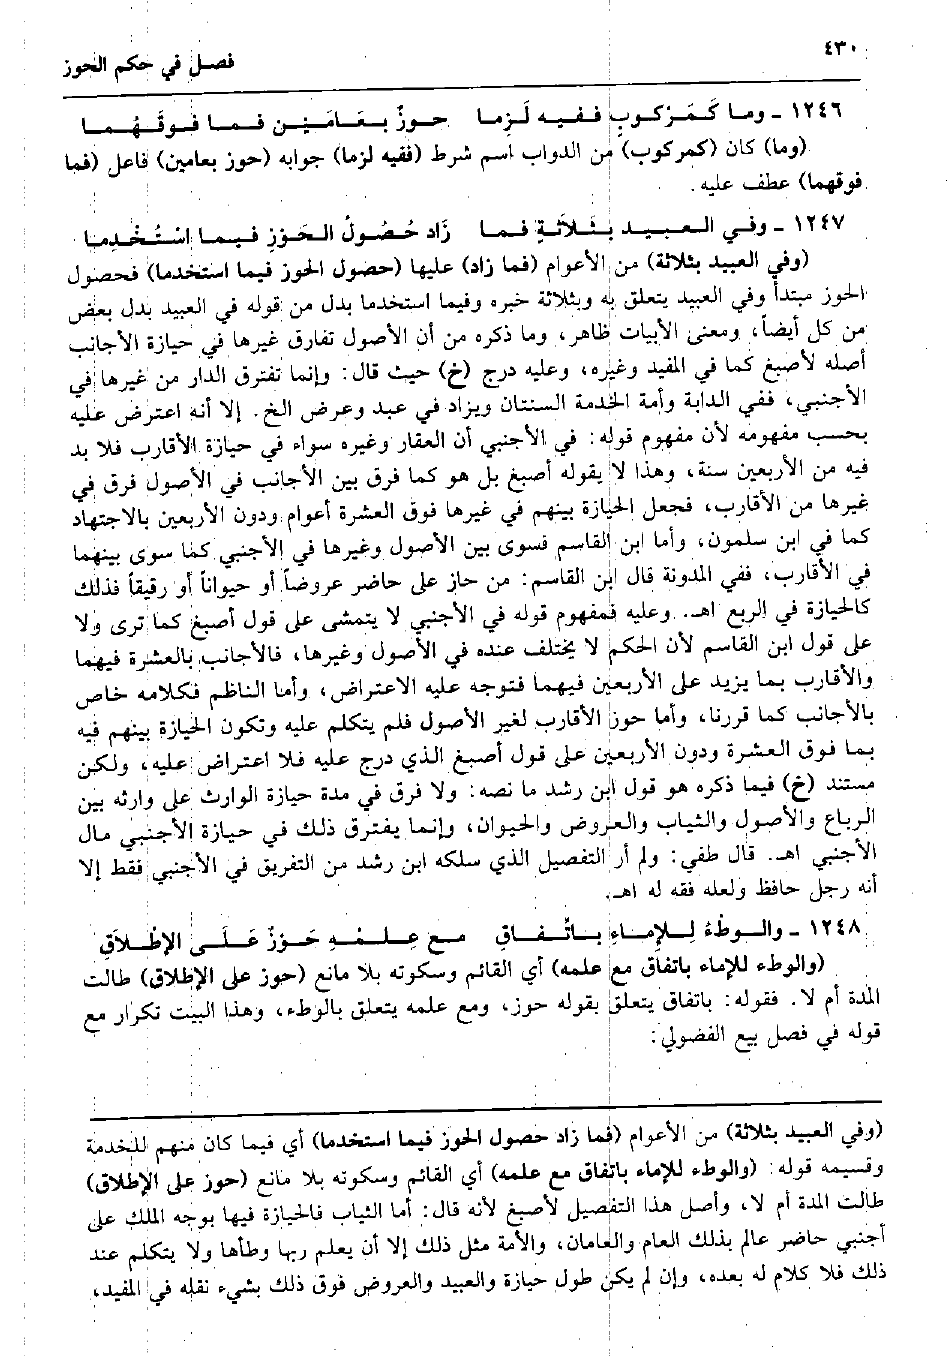 ٤٣٠
فصل في حكم الحوز
١٢٤٦ ـ وما كَمَرْكوبٍ ففيه لَزِما حوزٌ بعَامَيْن فما فوقَهُما
(وما) كان (كمركوب) من الدواب اسم شرط (فقيه لزما) جوابه (حوز بعامين) فاعل (فما
فوقهما) عطف عليه.
١٢٤٧ ـ وفي العبيد بثلاثةٍ فما زَاد حُصُولُ الحَوْزِ فيما اسْتُخْدِما
(وفي العبيد بثلاثة) من الأعوام (فما زاد) عليها (حصول الحوز فيما استخدما) فحصول
الحوز مبتدأ وفي العبيد يتعلق به وبثلاثة خبره وفيما استخدما بدل من قوله في العبيد بدل بعض
من كل أيضاً، ومعنى الأبيات ظاهر، وما ذكره من أن الأصول تفارق غيرها في حيازة الأجانب
أصله لأصبغ كما في المفيد وغيره، وعليه درج (خ) حيث قال: وإنما تفترق الدار من غيرها في
الأجنبي، ففي الدابة وأمة الخدمة السنتان ويزاد في عبد وعرض الخ. إلا أنه اعترض عليه
بحسب مفهومه لأن مفهوم قوله: في الأجنبي أن العقار وغيره سواء في حيازة الأقارب فلا بد
فيه من الأربعين سنة، وهذا لا يقوله أصبغ بل هو كما فرق بين الأجانب في الأصول فرق في
غيرها من الأقارب، فجعل الحيازة بينهم في غيرها فوق العشرة أعوام ودون الأربعين بالاجتهاد
كما في ابن سلمون، وأما ابن القاسم فسوى بين الأصول وغيرها في الأجنبي كما سوى بينهما
في الأقارب، ففي المدونة قال ابن القاسم: من حاز على حاضر عروضاً أو حيواناً أو رقيقاً فذلك
كالحيازة في الربع اهـ. وعليه فمفهوم قوله في الأجنبي لا يتمشى على قول أصبغ كما ترى ولا
على قول ابن القاسم لأن الحكم لا يختلف عنده في الأصول وغيرها، فالأجانب بالعشرة فيهما
والأقارب بما يزيد على الأربعين فيهما فتوجه عليه الاعتراض، وأما الناظم فكلامه خاص
بالأجانب كما قررنا، وأما حوز الأقارب لغير الأصول فلم يتكلم عليه وتكون الحيازة بينهم فيه
بما فوق العشرة ودون الأربعين على قول أصبغ الذي درج عليه فلا اعتراض عليه، ولكن
مستند (خ) فيما ذكره هو قول ابن رشد ما نصه: ولا فرق في مدة حيازة الوارث على وارثه بين
الرباع والأصول والثياب والعروض والحيوان، وإنما يفترق ذلك في حيازة الأجنبي مال
الأجنبي اهـ. قال طفي: ولم أر التفصيل الذي سلكه ابن رشد من التفريق في الأجنبي فقط إلا
أنه رجل حافظ ولعله فقه له اهـ.
١٢٤٨ ـ والوطءُ لِلإماءِ باتِّفاقِ مع عِلمهِ حَوْزٌ عَلَى الإطْلاَقِ
(والوطء للإماء باتفاق مع علمه) أي القائم وسكوته بلا مانع (حوز على الإطلاق) طالت
المدة أم لا. فقوله: باتفاق يتعلق بقوله حوز، ومع علمه يتعلق بالوطء، وهذا البيت تكرار مع
قوله في فصل بيع الفضولي:
(وفي العبيد بثلاثة) من الأعوام (فما زاد حصول الحوز فيما استخدما) أي فيما كان منهم للخدمة
وقسيمه قوله: (والوطء للإماء باتفاق مع علمه) أي القائم وسكوته بلا مانع (حوز على الإطلاق)
طالت المدة أم لا، وأصل هذا التفصيل لأصبغ لأنه قال: أما الثياب فالحيازة فيها بوجه الملك على
أجنبي حاضر عالم بذلك العام والعامان، والأمة مثل ذلك إلا أن يعلم ربها وطأها ولا يتكلم عند
ذلك فلا كلام له بعده، وإن لم يكن طول حيازة والعبيد والعروض فوق ذلك بشيء نقله في المفيد،